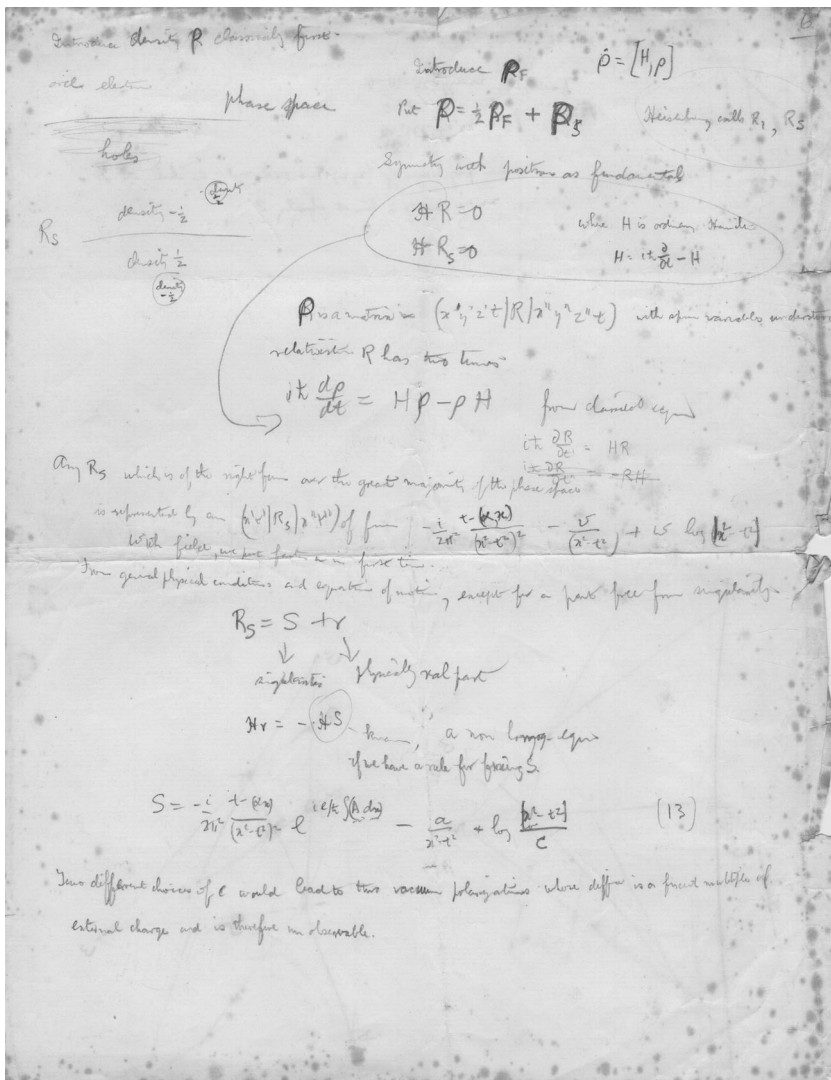 Introduce density ρ classically first.
Introduce ρ_F ρ̇ = [H, ρ]
phase space
Put R = ½ρ_F + R_S Heisenberg calls R_1, R_S
holes
Symmetry with positrons as fundamental
density -½
R_S
density ½
density -½
ℋ R = 0 where H is ordinary
ℋ R_S = 0 ℋ = iħ ∂/∂t - H
ρ is a matrix (x' y' z' t | R | x'' y'' z'' t) with spin variables
relativistic R has two times
iħ dρ/dt = Hρ - ρH from classical equ
iħ ∂R/∂t' = HR
Any R_S which is of the right form over the great majority of the phase space
is represented by an (x't'|R_S|x''t'') of form -i/2π² t-(αx)/(x²-t²)² - v/(x²-t²) + w log |x²-t²|
With fields, we put
From general physical conditions and equation of motion, except for a part free from singularity
R_S = S + r
singularities physically real part
ℋr = -ℋS known, a non homog. equ
if we have a rule for fixing S
S = -i/2π² t-(αx)/(x²-t²)² e^{ie/ħ ∫(A dx)} - a/(x²-t²) + log |x²-t²|/C (13)
Two different choices of C would lead to two vacuum polarizations whose differ is a fixed multiple of
external charge and is therefore unobservable.